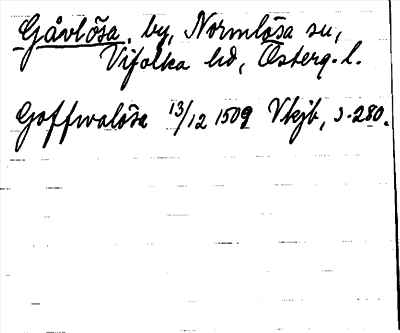 Gåvlösa, by, Normlösa sn,
Vifolka hd, Österg. l.
Goffwalösa 13/12 1509 Vkjb, s. 280.